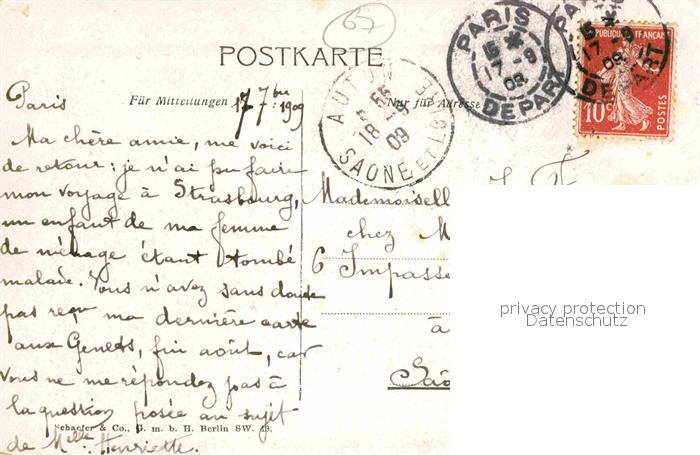 67
POSTKARTE
PARIS
15 * 17 -9 09
DEPART
PARIS
15 * 17 -9 09
DEPART
REPUBLIQUE FRANÇAISE
10c POSTES
AUTUN
8-55 18-9 09
SAONE ET LOIRE
Für Mitteilungen
Nur für Adresse
Paris 17 7bre 1909
Ma chère amie, me voici
de retour : je n'ai pu faire
mon voyage à Strasbourg,
un enfant de ma femme
de ménage étant tombé
malade. Vous n'avez sans doute
pas reçu ma dernière carte
aux Genets, fin août, car
vous ne me répondez pas à
la question posée au sujet
de Melle Henriette.
Mademoisell
chez M
6 Impasse
à
Saô
Schaefer & Co., G. m. b. H. Berlin SW.
privacy protection
Datenschutz